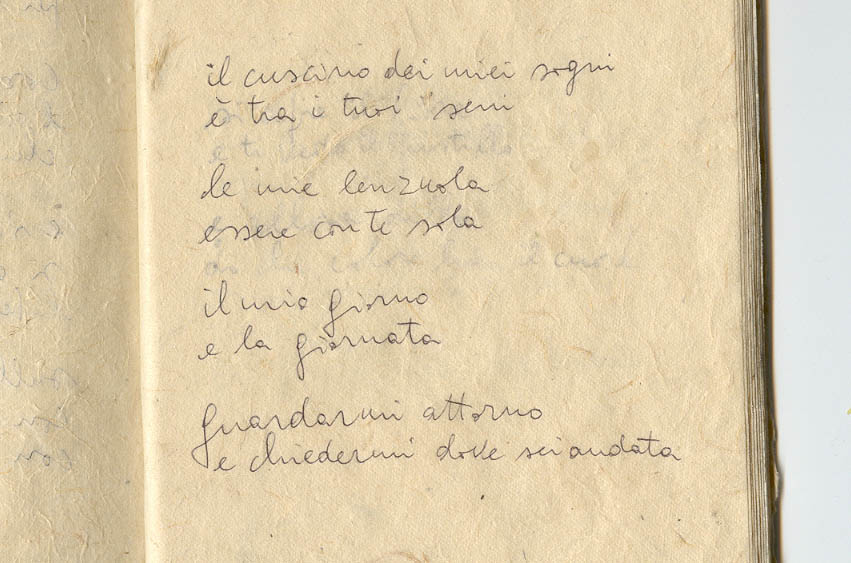 il cuscino dei miei sogni
è tra i tuoi seni
le mie lenzuola
essere con te sola
il mio giorno
e la giornata
guardarmi attorno
e chiedermi dove sei andata